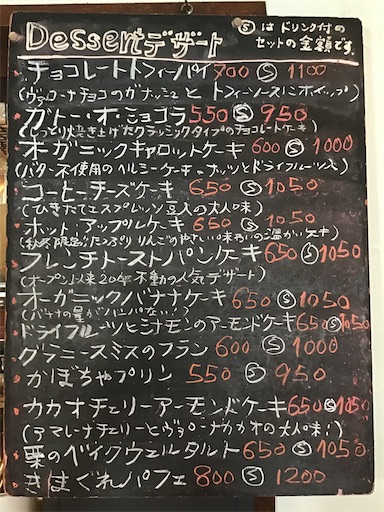 Dessertデザート
Ⓢはドリンク付の
セットの金額です。
チョコレートトフィーパイ 700 Ⓢ 1100
(ヴァローナチョコのガナッシュと トフィーソースにホイップ)
ガトー・オ・ショコラ 550 Ⓢ 950
(しっとり焼き上げたクラシックタイプのチョコレートケーキ)
オーガニックキャロットケーキ 600 Ⓢ 1000
(バター不使用のヘルシーケーキ。ナッツとドライフルーツ入)
コーヒーチーズケーキ 650 Ⓢ 1050
(ひきたてエスプレッソ豆入の大人味)
ホット・アップルケーキ 650 Ⓢ 1050
(秋冬限定。たっぷりりんごのやさしい味わいのご温かいケーキ)
フレンチトーストパンケーキ 650 Ⓢ 1050
(オープン以来20年不動の人気デザート)
オーガニックバナナケーキ 650 Ⓢ 1050
(バナナの量がハンパない!)
ドライフルーツとシナモンのアーモンドケーキ 650 Ⓢ 1050
グラニースミスのフラン 600 Ⓢ 1000
かぼちゃプリン 550 Ⓢ 950
カカオチェリーアーモンドケーキ 650 Ⓢ 1050
(アマレーナチェリーとヴァローナカカオの大人味!)
栗のベイクウェルタルト 650 Ⓢ 1050
きまぐれパフェ 800 Ⓢ 1200